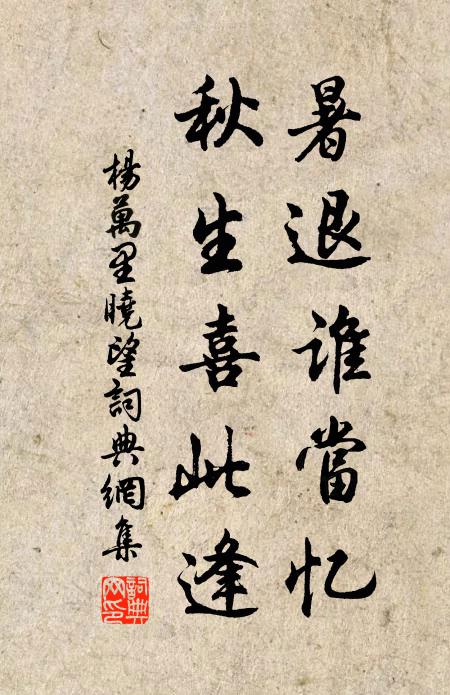 暑退谁當忆
秋生喜此逢
楊萬里曉望詞典網集
詞典網印